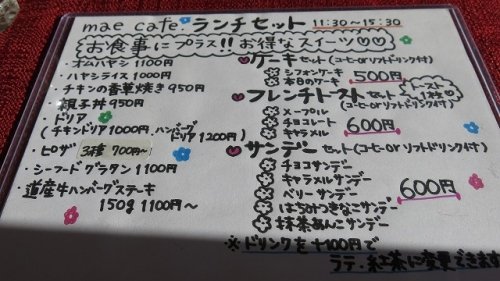 mae cafe. ランチセット 11:30~15:30
お食事にプラス!! お得なスイーツ♡♡
・オムハヤシ 1100円
・ハヤシライス 1000円
・チキンの香草焼き 950円
・親子丼 950円
・ドリア
(チキンドリア1000円、ハンバーグドリア1200円)
・ピザ 3種 700円~
・シーフードグラタン 1100円
・道産牛ハンバーグステーキ
150g 1100円~
ケーキセット(コーヒーorソフトドリンク付)
シフォンケーキ
本日のケーキ
500円
フレンチトーストセット
トースト
(コーヒーorソフトドリンク付)
メープル
チョコレート
キャラメル
600円
サンデーセット(コーヒーorソフトドリンク付)
チョコサンデー
キャラメルサンデー
ベリーサンデー
はちみつきなこサンデー
抹茶あんこサンデー
600円
※ドリンクを+100円で
ラテ・紅茶に変更できます